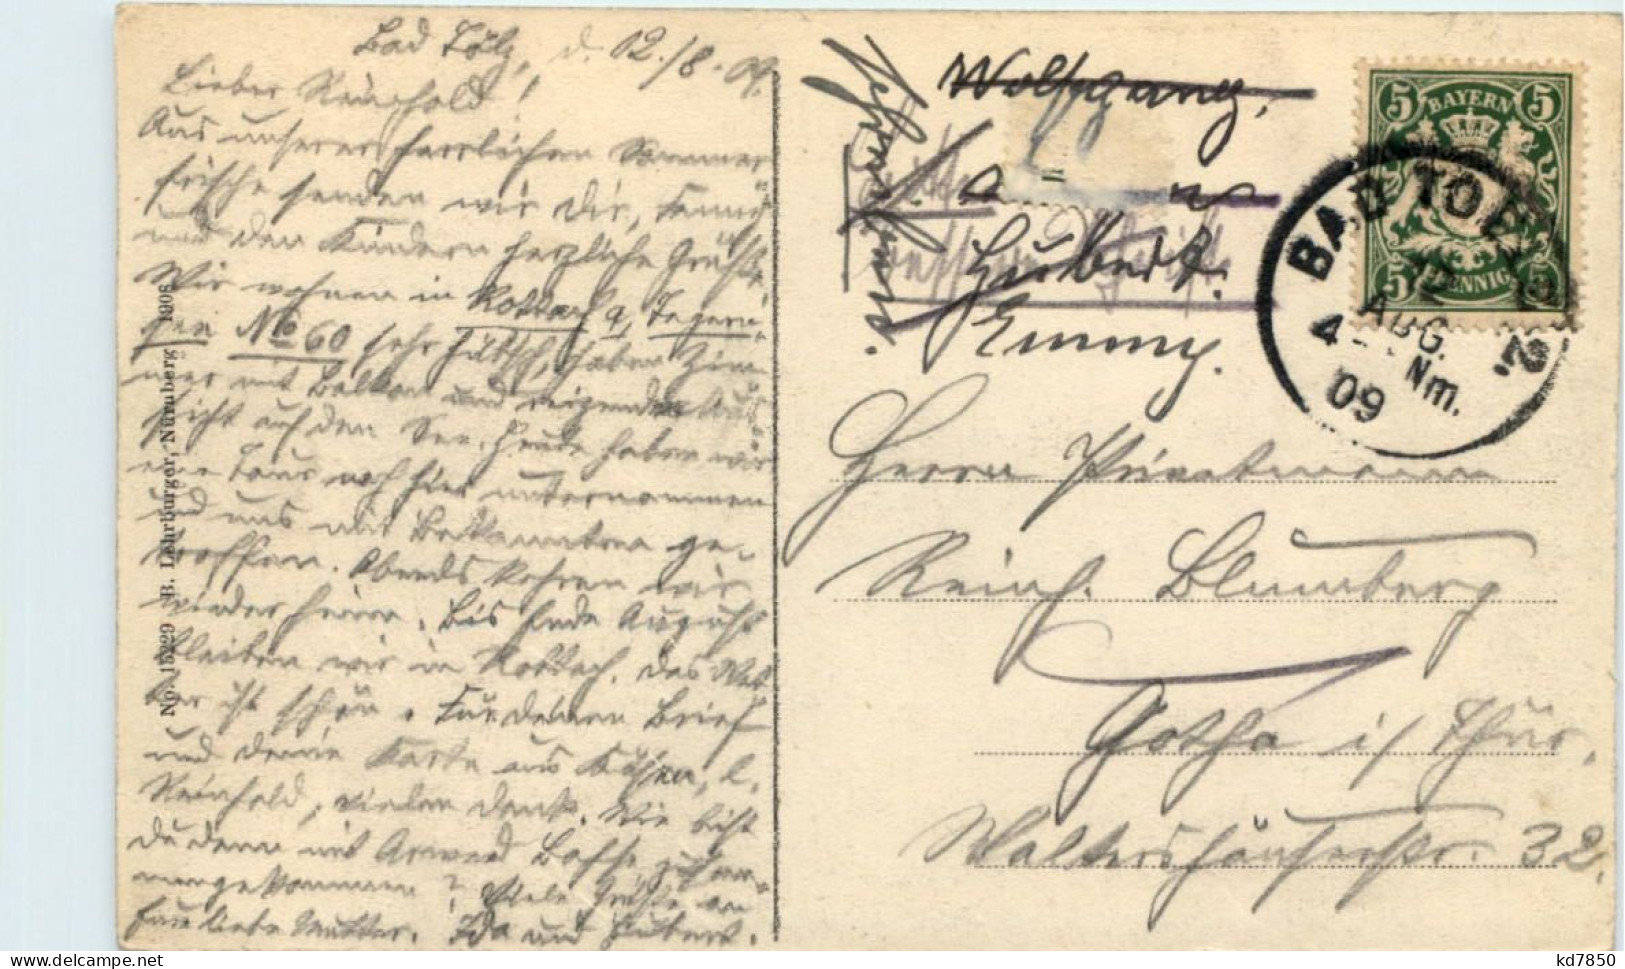 Bad Tölz, d. 12./8. 09.
Lieber Reinhold!
Aus unserer herrlichen Sommer-
frische senden wir dir, Fanny
und den Kindern herzliche Grüße.
Wir wohnen in Rottach a. Tegern-
see No 60 sehr hübsch, haben Zim-
mer mit Balkon und reizender Aus-
sicht auf den See. Heute haben wir
eine Tour nach hier unternommen
und uns mit Bekannten ge-
troffen. Abends kehren wir
wieder heim. Bis Ende August
bleiben wir in Rottach. Das Wet-
ter ist schön. Für deinen Brief
und deine Karte aus Kösen, l.
Reinhold, vielen Dank. Wie bist
du denn mit zusam-
mengekommen? Viele Grüße an
Eure liebe Mutter. Ida und Hubert.
No. 15229 B. Lehrburger, Nürnberg 1908
Wolfgang,
Hubert.
Emmy.
5 BAYERN 5
5 PFENNIG 5
BAD TOELZ 2.
12 AUG.
4 Nm.
09
Herrn Privatmann
Reinh. Blumberg
Gotha i/ Thür.
Waltershäuserstr. 32.
kd7850